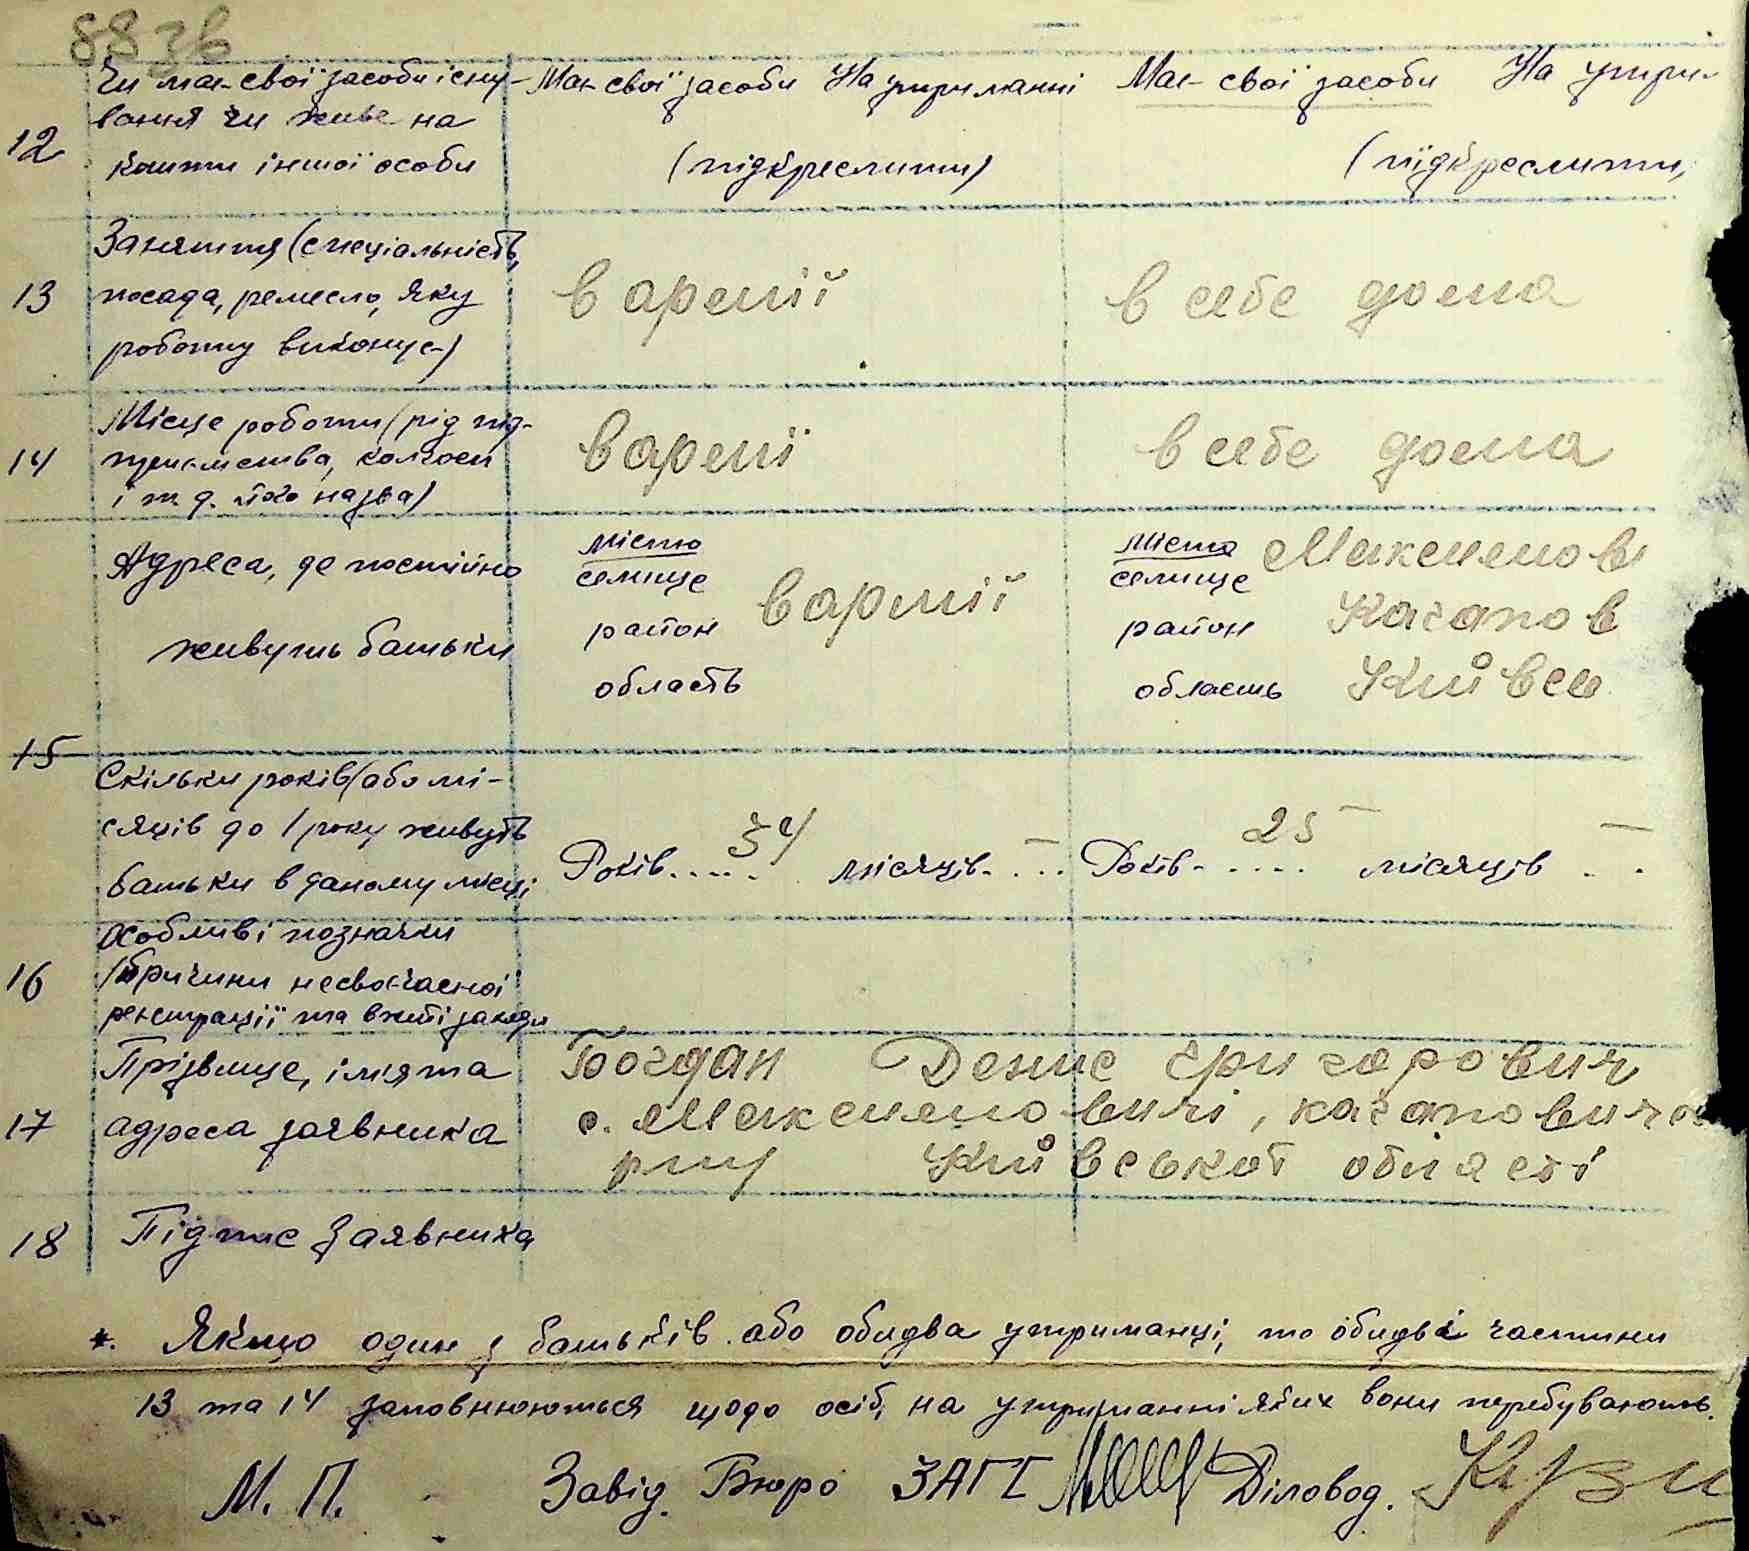 88 зв
Чи має свої засоби існу- Має свої засоби На утриманні Має свої засоби На утри-
вання чи живе на
12 кошти іншої особи (підкреслити) (підкреслити)
Заняття (спеціальність,
13 посада, ремесло, яку в армії в себе дома
роботу виконує)
Місце роботи (рід під-
14 приємства, колгосп в армї в себе дома
і т д. його назва)
Адреса, де постійно місто місто Максимов
селище в армії селище
район район Каганов
живуть батьки область область Київськ
15
Скільки років (або мі-
сяців до 1 року живуть
батьки в даному місці Років..... 34 місяців. – ... Років. .... 25 – місяців – . .
Особливі позначки
16 (Причини несвоєчасної
реєстрації та вжиті заходи
Прізвище, ім'я та Богдан Денис Григорович
17 адреса заявника с. Максимовичі, кагановичсь
р-ну Київської області
18 Підпис заявника
*. Якщо один з батьків або обидва утриманці, то обидві частини
13 та 14 заповнюються щодо осіб, на утриманні яких вони перебувають.
М. П. Завід. Бюро ЗАГС Діловод.